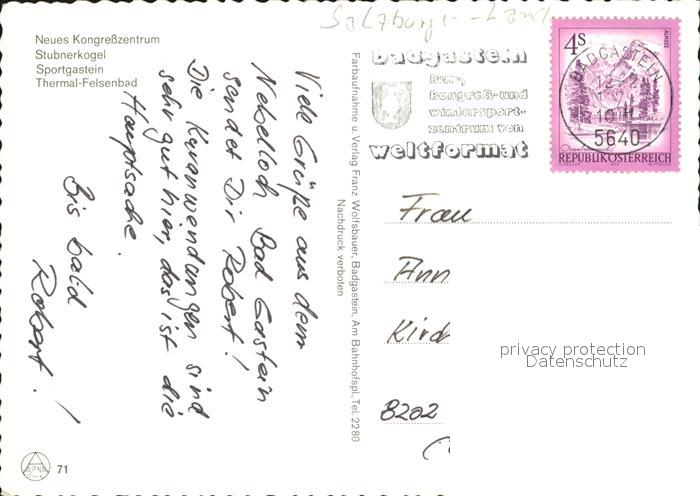 Neues Kongreßzentrum
Stubnerkogel
Sportgastein
Thermal-Felsenbad
Viele Grüße aus dem
Nebelloch Bad Gastein
sendet Dir Robert!
Die Kuranwendungen sind
sehr gut hier, das ist die
Hauptsache.
Bis bald
Robert!
71
Farbaufnahme u. Verlag Franz Wolfsbauer, Badgastein, Am Bahnhofspl., Tel. 2280
Nachdruck verboten
badgastein
kur-,
kongreß- und
wintersport-
zentrum von
weltformat
4S
ALMSEE
BADGASTEIN
5640
REPUBLIK ÖSTERREICH
Frau
Ann
Kird
8202
privacy protection
Datenschutz